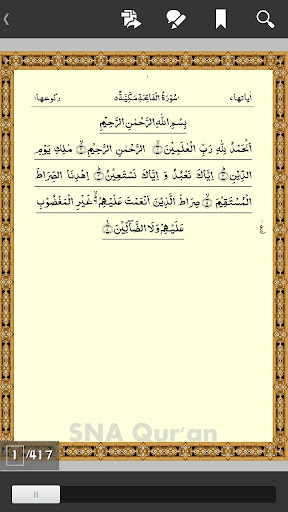 اٰیاتھا، سُوْرَةُ الْفَاتِحَةِ مَكِّيَّةٌ ركوعھا،
بِسْمِ اللهِ الرَّحْمٰنِ الرَّحِيْمِ
اَلْحَمْدُ لِلّٰهِ رَبِّ الْعٰلَمِيْنَ ۝ الرَّحْمٰنِ الرَّحِيْمِ ۝ مٰلِكِ يَوْمِ
الدِّيْنِ ۝ اِيَّاكَ نَعْبُدُ وَ اِيَّاكَ نَسْتَعِيْنُ ۝ اِهْدِنَا الصِّرَاطَ
الْمُسْتَقِيْمَ ۝ صِرَاطَ الَّذِيْنَ اَنْعَمْتَ عَلَيْهِمْ ۙ غَيْرِ الْمَغْضُوْبِ
عَلَيْهِمْ وَلَا الضَّآلِّيْنَ ۝
SNA Qur'an
1 /417